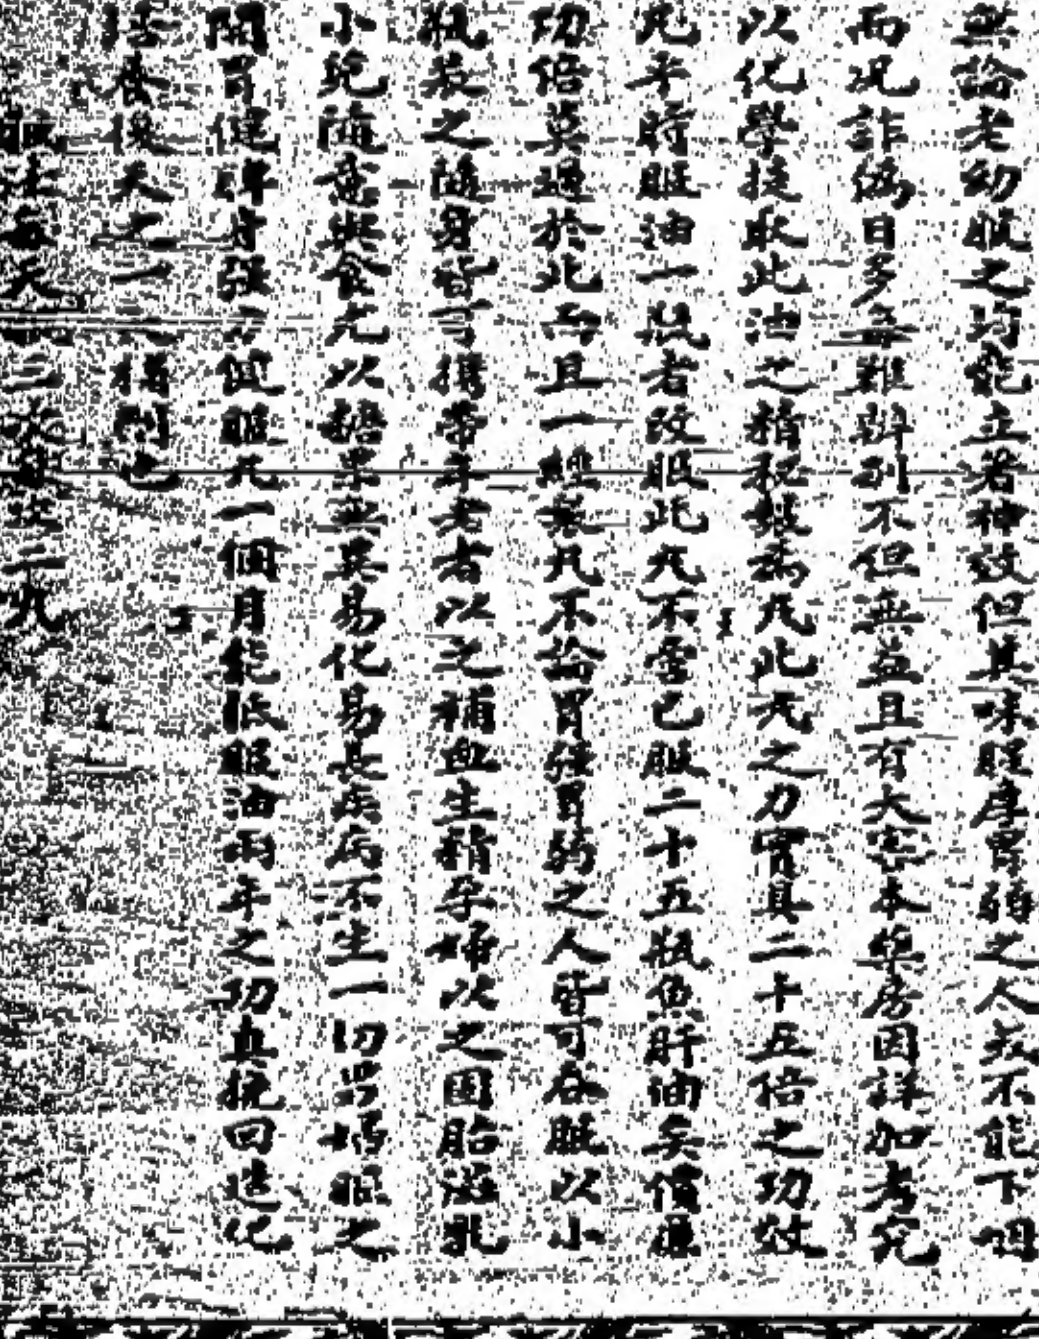 無論老幼服之均能立著神效但其味腥厚胃弱之人或不能下咽
而况詐偽日多每難辨别不但無益且有大害本藥房因詳加考究
以化學提取此油之精秘製為丸此丸之力實具二十五倍之功效
凡平時服油一瓶者改服此丸不啻已服二十五瓶魚肝油矣價廉
功倍莫過於此而且一經製丸不論胃强胃弱之人皆可吞服以小
瓶裝之隨身皆可携帶年老者以之補血生精孕婦以之固胎滋乳
小兒隨意與食尤以糖果無異易化易長疾病不生一切勞傷服之
開胃健脾身强力健服丸一個月能抵服油兩年之功真挽回造化
培養後天之一
服法每天服三次每次二丸